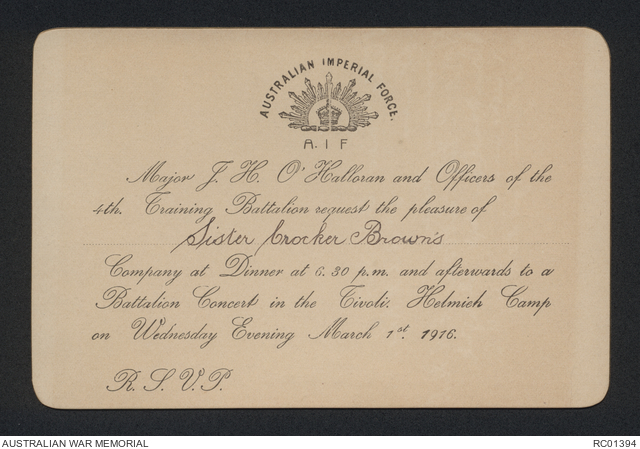 AUSTRALIAN IMPERIAL FORCE.
A. I F
Major J. H. O'Halloran and Officers of the
4th. Training Battalion request the pleasure of
Sister Crocker Brown's
Company at Dinner at 6.30 p.m. and afterwards to a
Battalion Concert in the Tivoli. Helmieh Camp
on Wednesday Evening March 1st. 1916.
R. S. V. P.
AUSTRALIAN WAR MEMORIAL
RC01394